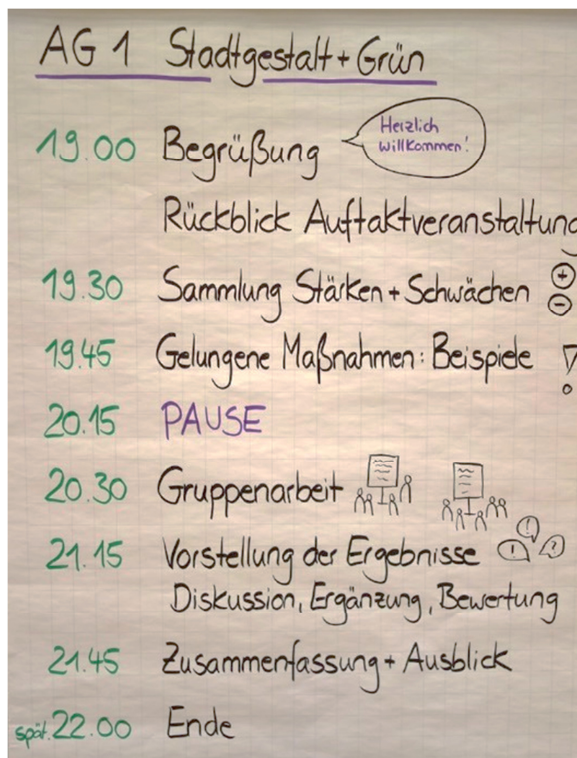 AG 1 Stadtgestalt + Grün
19.00 Begrüßung
Herzlich
Willkommen!
Rückblick Auftaktveranstaltung
19.30 Sammlung Stärken + Schwächen
19.45 Gelungene Maßnahmen: Beispiele !
20.15 PAUSE
20.30 Gruppenarbeit
21.15 Vorstellung der Ergebnisse
Diskussion, Ergänzung, Bewertung
21.45 Zusammenfassung + Ausblick
spät. 22.00 Ende